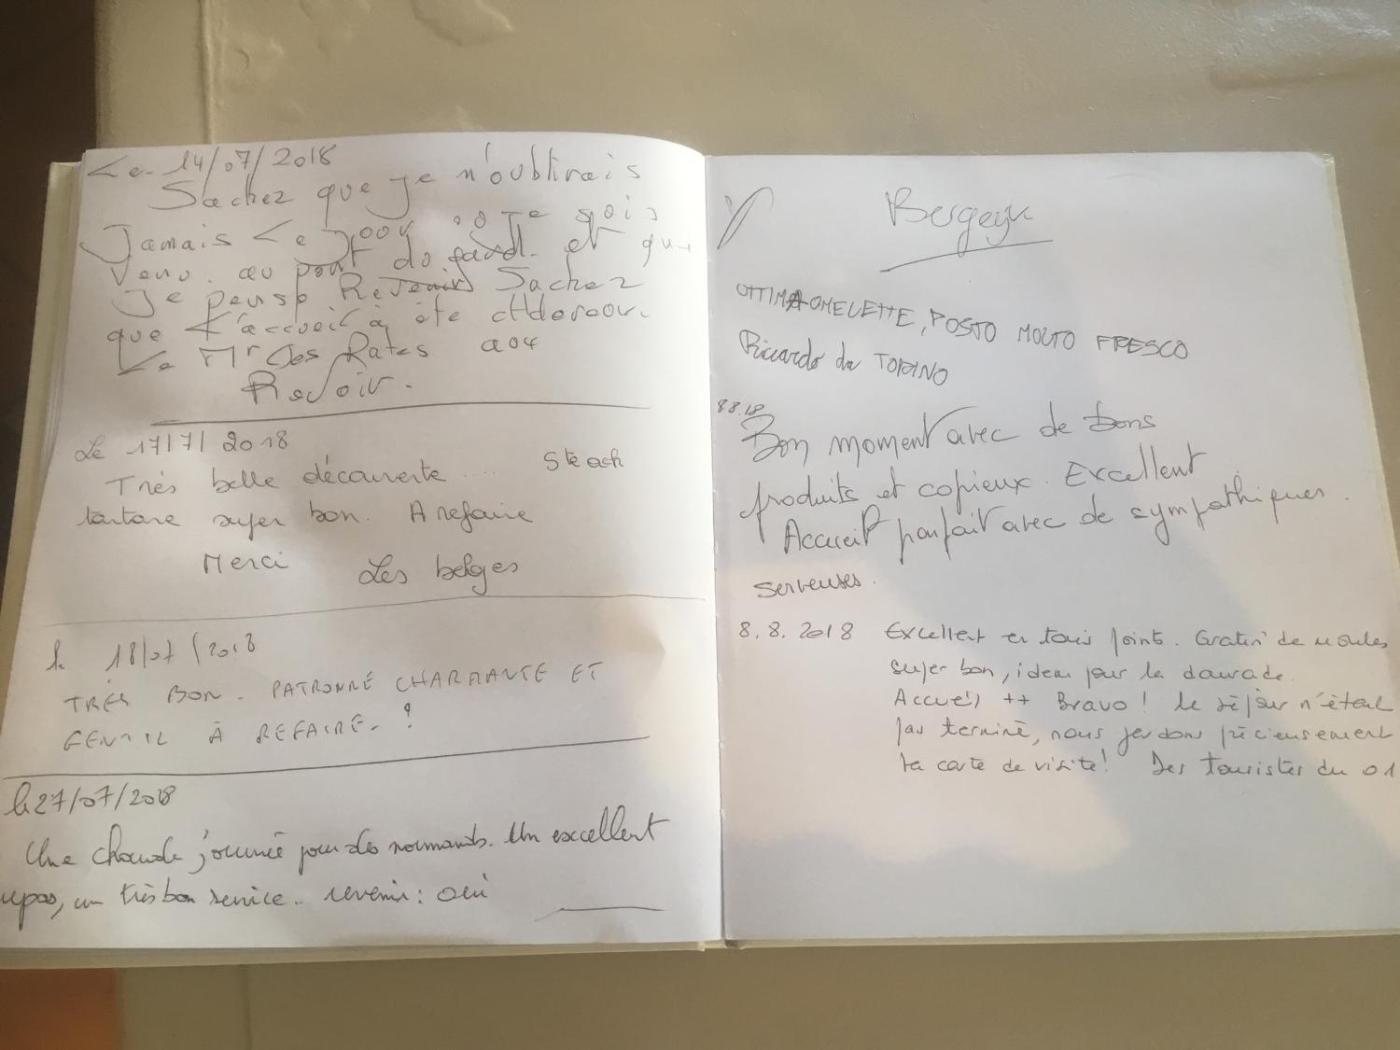 Le 14/07/2018
Sachez que je n'oublirais
Jamais Le Jour où Je sois
venu. au pont du gard. et que
Je pense Revenir Sachez
que L'accueil à été
Le Mr des Rates aur
Revoir.
Le 17/7/2018
Très belle découverte ..... Steack
tartare super bon. A refaire
Merci Les belges
le 18/07/2018
TRÉS BON. PATRONNE CHARMANTE ET
GENTIL À REFAIRE. !
le 27/07/2018
Une chaude journée pour des normands. Un excellent
repas, un très bon service.. revenir : oui
OTTIMA OMELETTE, POSTO MOLTO FRESCO
Riccardo da TORINO
8.8.18
Bon moment avec de bons
produits et copieux. Excellent
Accueil parfait avec de sympathiques
serveuses.
8.8.2018 Excellent en tous points. Gratin de moules
super bon, idem pour la daurade.
Accueil ++ Bravo ! Le séjour n'étant
pas terminé, nous gardons précieusement
la carte de visite! Des touristes du 01